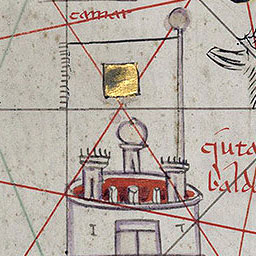 camar
ciuta
balda
I T